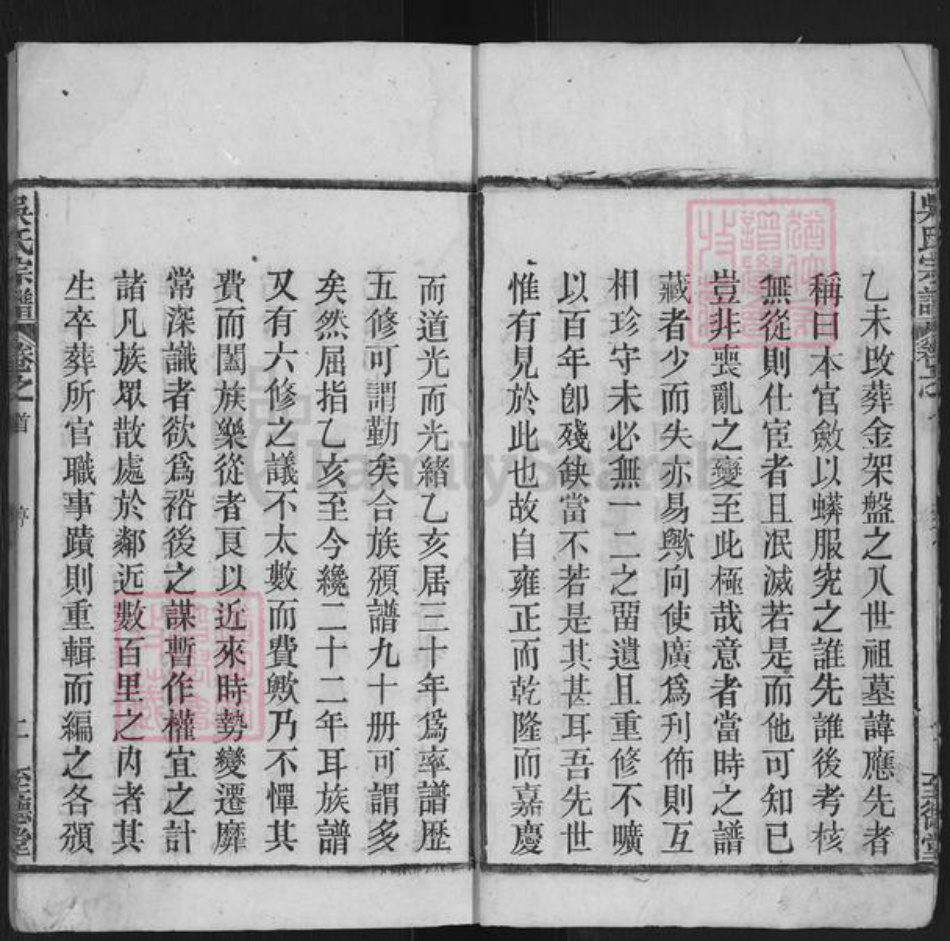 吳氏宗譜
乙未改葬金架盤之八世祖墓諱應先者
稱曰本官斂以蟒服究之誰先誰後考核
無從則仕宦者且泯滅若是而他可知已
豈非喪亂之變至此極哉意者當時之譜
藏者少而失亦易歟向使廣爲刋佈則互
相珍守未必無一二之畱遺且重修不曠
以百年卽殘缺當不若是其甚耳吾先世
惟有見於此也故自雍正而乾隆而嘉慶
而道光而光緒乙亥届三十年爲率譜歷
五修可謂勤矣合族頒譜九十册可謂多
矣然屈指乙亥至今纔二十二年耳族譜
又有六修之議不太數而費歟乃不憚其
費而闔族樂從者良以近來時勢變遷靡
常深識者欲爲裕後之謀暫作權宜之計
諸凡族眾散處於鄰近數百里之內者其
生卒葬所官職事蹟則重輯而編之各頒
吳氏宗譜 卷之首 至德堂
FamilySearch